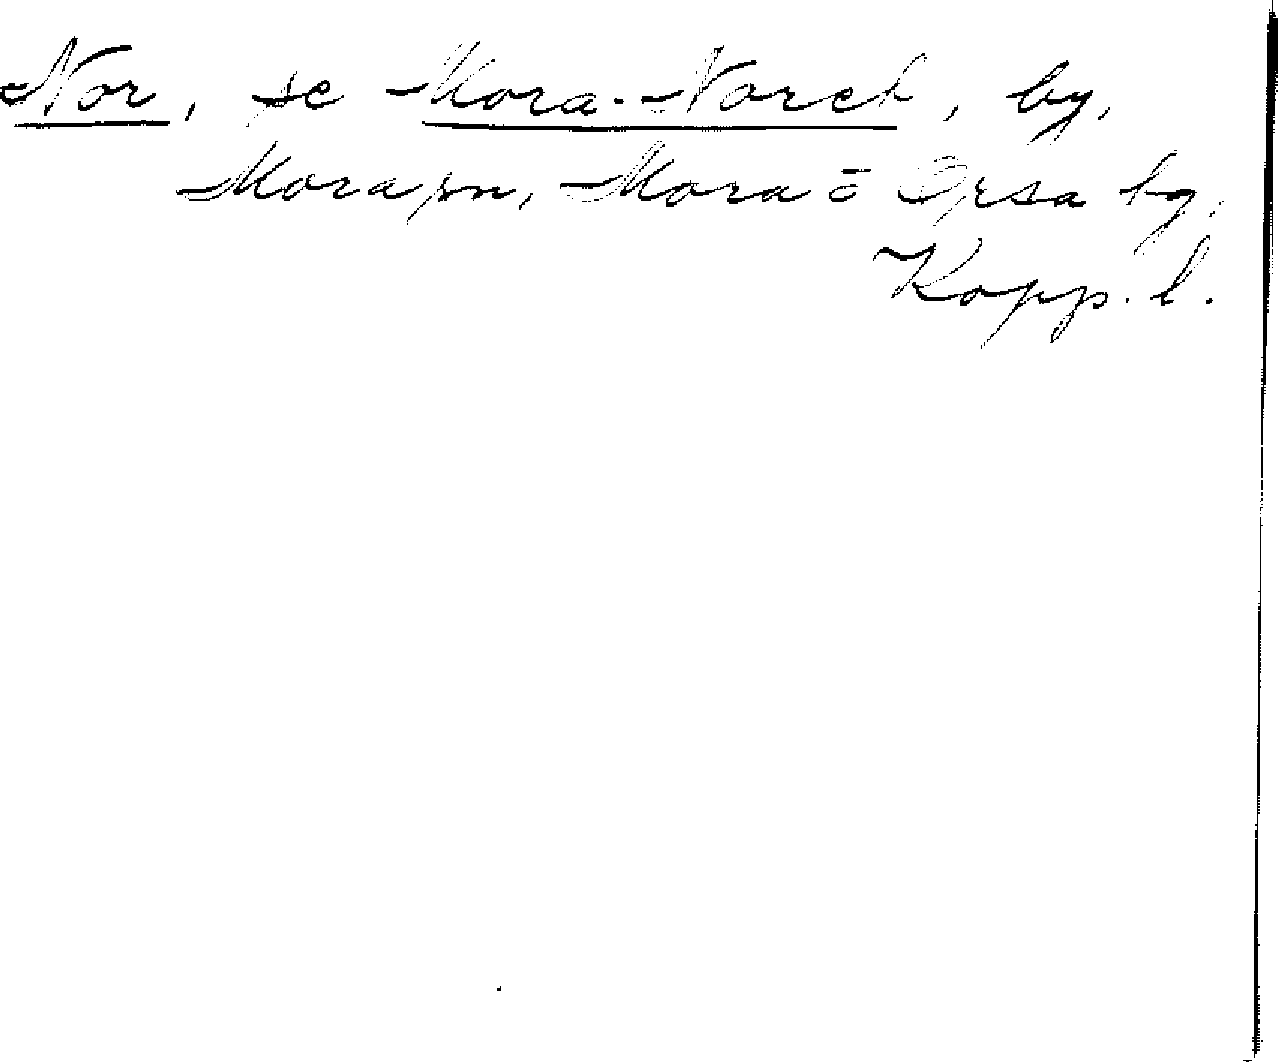 Nor, se Mora-Noret, by,
Mora sn, Mora ō Orsa tg,
Kopp. l.